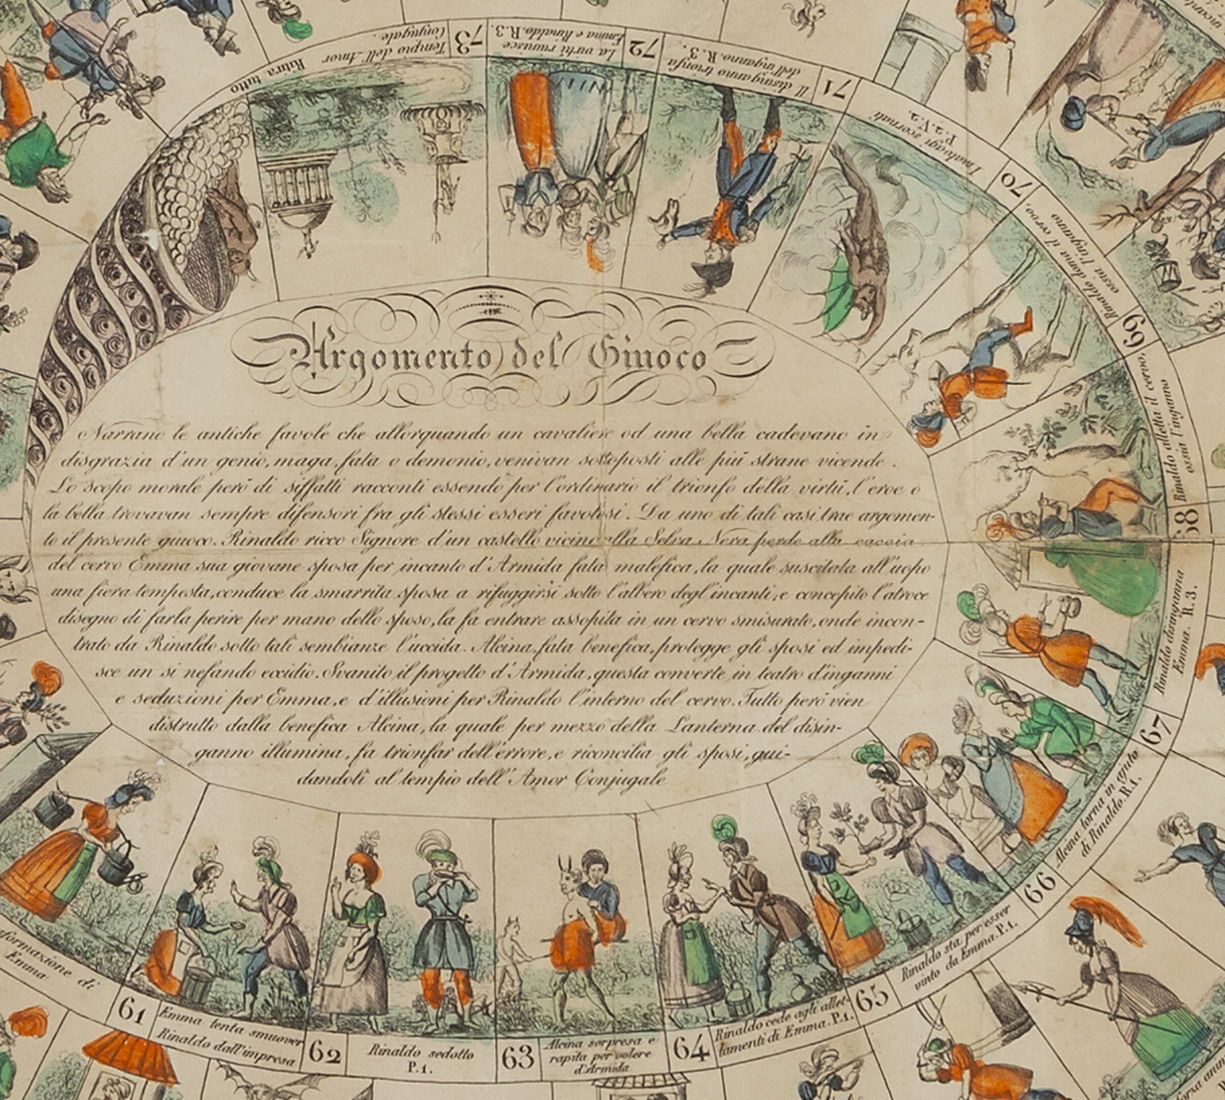 Argomento del Giuoco
Narrano le antiche favole che allorquando un cavaliere od una bella cadevano in
disgrazia d'un genio, maga, fata o demonio, venivan sottoposti alle piú strane vicende.
Lo scopo morale peró di siffatti racconti essendo per l'ordinario il trionfo della virtú, l'eroe o
la bella trovavan sempre difensori fra gli stessi esseri favolosi. Da uno di tali casi trae argomen-
to il presente giuoco. Rinaldo ricco Signore d'un castello vicino alla Selva Nera perde alla caccia
del cervo Emma sua giovane sposa per incanto d'Armida fata malefica, la quale suscitata all'uopo
una fiera tempesta, conduce la smarrita sposa a rifuggirsi sotto l'albero degl'incanti, e concepito l'atroce
disegno di farla perire per mano dello sposo, la fa entrare assopita in un cervo smisurato, onde incon-
trato da Rinaldo sotto tali sembianze l'uccida. Alcina, fata benefica, protegge gli sposi ed impedi-
sce un si nefando eccidio. Svanito il progetto d'Armida, questa converte in teatro d'inganni
e seduzioni per Emma, e d'illusioni per Rinaldo l'interno del cervo. Tutto peró vien
distrutto dalla benefica Alcina, la quale per mezzo della Lanterna del disin-
ganno illumina, fa trionfar dell'errore, e riconcilia gli sposi, gui-
dandoli al tempio dell'Amor Conjugale
sformazione di
Emma
61
Emma tenta smuover
Rinaldo dall'impresa
62
Rinaldo sedotto
P.1.
63
Alcina sorpresa e
rapita per volere
d'Armida
64
Rinaldo cede agli allet-
tamenti di Emma. P.1.
65
Rinaldo sta per esser
vinto da Emma. P.1.
66
Alcina torna in ajuto
di Rinaldo. R.1.
67
Rinaldo disinganna
Emma. R.3.
68
Rinaldo alletta il cervo,
ossia l'inganno
69
Rinaldo doma il cervo,
ossia l'inganno
70
I malvagi scornati
P.2. V.2.
71
Il disinganno trionfa
dell'inganno. R.3.
72
La virtù riunisce
Emma e Rinaldo. R.3.
73
Tempio dell'Amor
Conjugale.
Ritira tutto